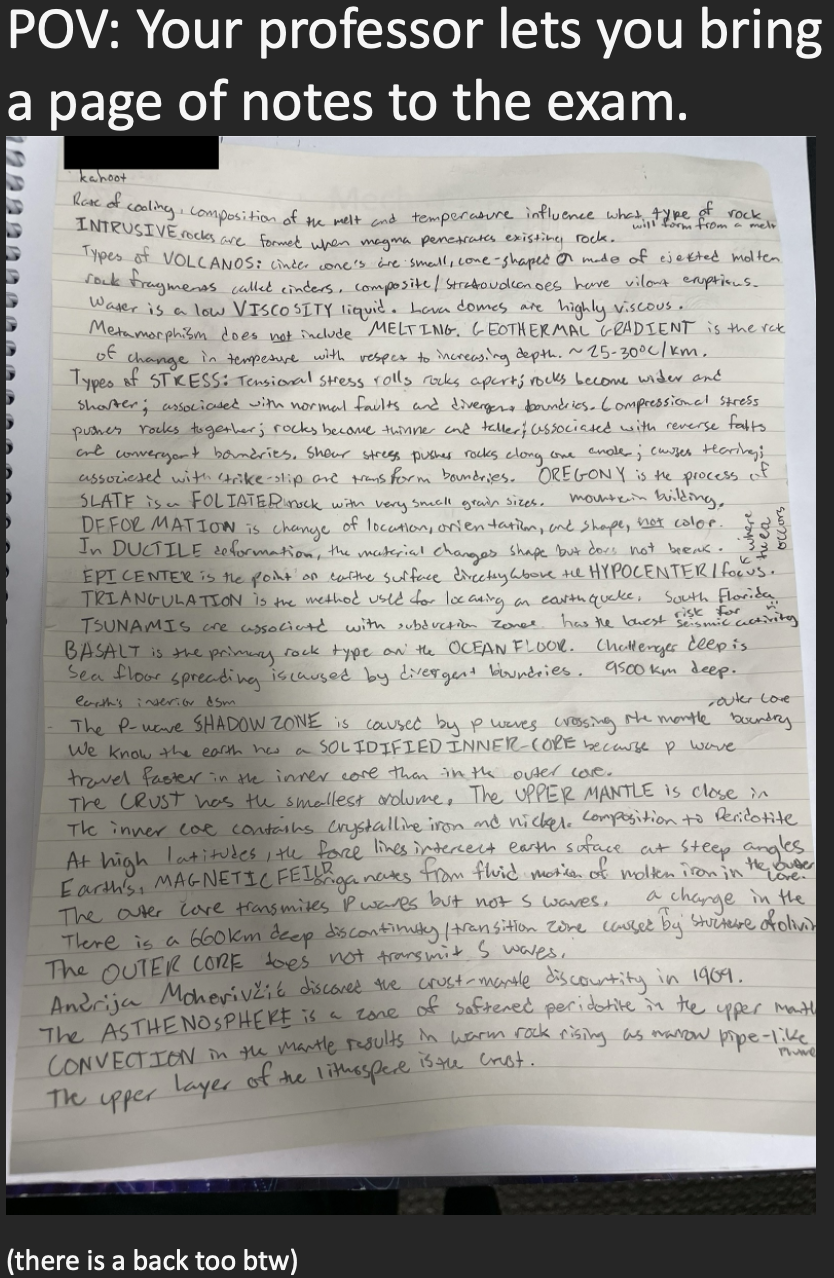 POV: Your professor lets you bring
a page of notes to the exam.
kahoot
Rate of cooling, composition of the melt and temperature influence what type of rock
will form from a melt
INTRUSIVE rocks are formed when magma penetrates existing rock.
Types of VOLCANOS: cinder cone's are small, cone-shaped made of ejected molten
rock fragments called cinders. composite/stratovolcanoes have
Water is a low VISCOSITY liquid. Lava domes are highly viscous.
Metamorphism does not include MELTING. GEOTHERMAL GRADIENT is the
of change in with respect to increasing depth. ~25-30°C/km.
Types of STRESS: Tensional stress rocks apart; rocks become wider and
shorter; associated with normal faults and boundries. Compressional stress
pushes rocks together; rocks become thinner and taller; associated with reverse
and convergent boundries. Shear stress pushes rocks along one another; causes tearing;
associated with strike-slip and transform boundries. OREGONY is the process of
mountain building.
SLATE is a FOLIATED rock with very small grain sizes.
DEFORMATION is change of location, orientation, and shape, not color.
In DUCTILE deformation, the material changes shape but does not break.
EPICENTER is the point on earths surface directly above the HYPOCENTER/focus.
where
occurs
TRIANGULATION is the method used for locating an earthquake. South Florida
has the lowest risk for seismic activity
TSUNAMIS are associated with subduction zones
BASALT is the primary rock type on the OCEAN FLOOR. Challenger deep is
9500 km deep.
Sea floor spreading is caused by divergent boundries.
earth's interior
The P-wave SHADOW ZONE is caused by p waves crossing the mantle boundry
outer core
We know the earth has a SOLIDIFIED INNER-CORE because p wave
travel faster in the inner core than in the outer core.
The CRUST has the smallest volume. The UPPER MANTLE is close in
composition to Peridotite
The inner core contains crystalline iron and nickel.
At high latitudes, the force lines intersect earth at steep angles
Earth's MAGNETIC from fluid motion of molten iron in the outer core.
The outer core transmits P waves but not S waves.
There is a 660km deep discontinuity/transition zone caused by a change in the structure of
The OUTER CORE does not transmit S waves.
Andrija the crust-mantle in 1909.
The ASTHENOSPHERE is a zone of softened peridotite in the upper
CONVECTION in the mantle results in warm rock rising as narrow pipe-like
The upper layer of the is the crust.
(there is a back too btw)